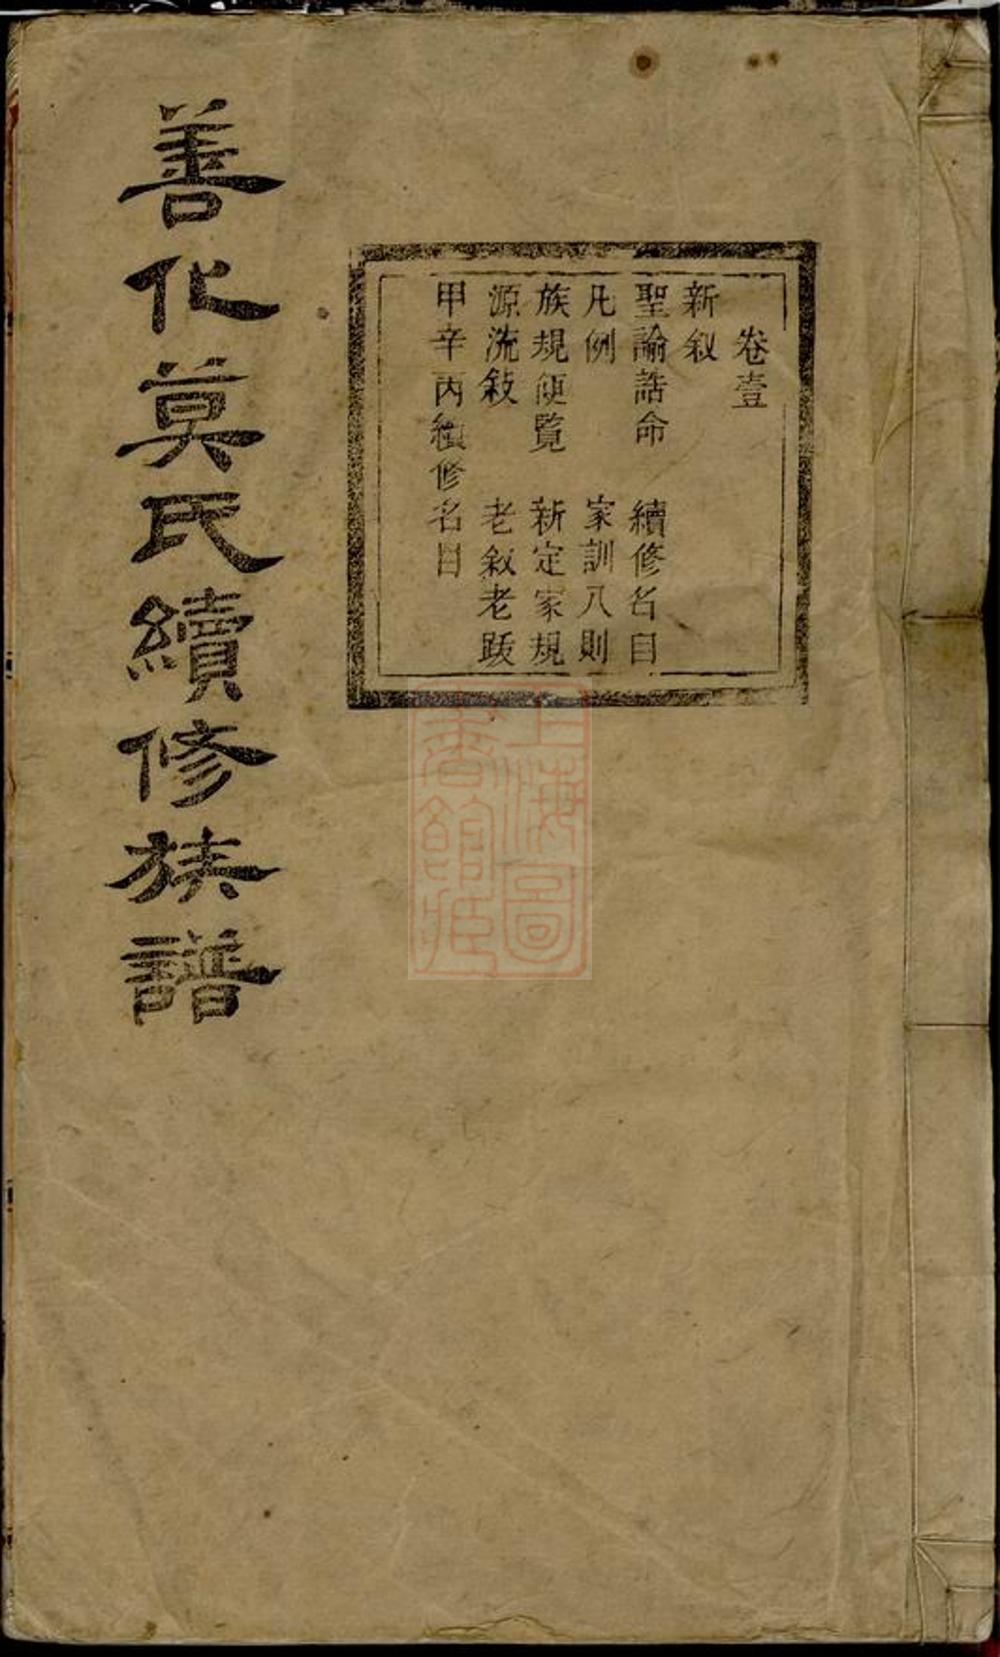 卷壹
新叙
聖諭誥命　續修名目
凡例　家訓八則
族規便覽　新定家規
源流敍　老叙老跋
甲辛丙續修名目
善化莫氏續修族譜
上海圖書館藏